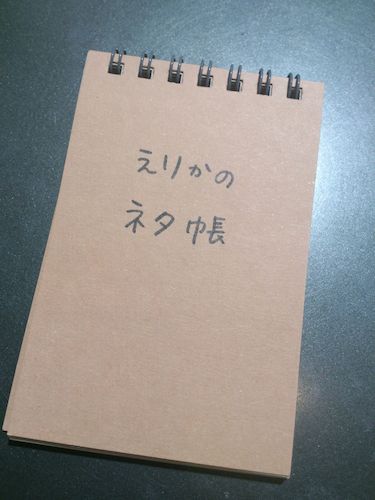 えりかの
ネタ帳